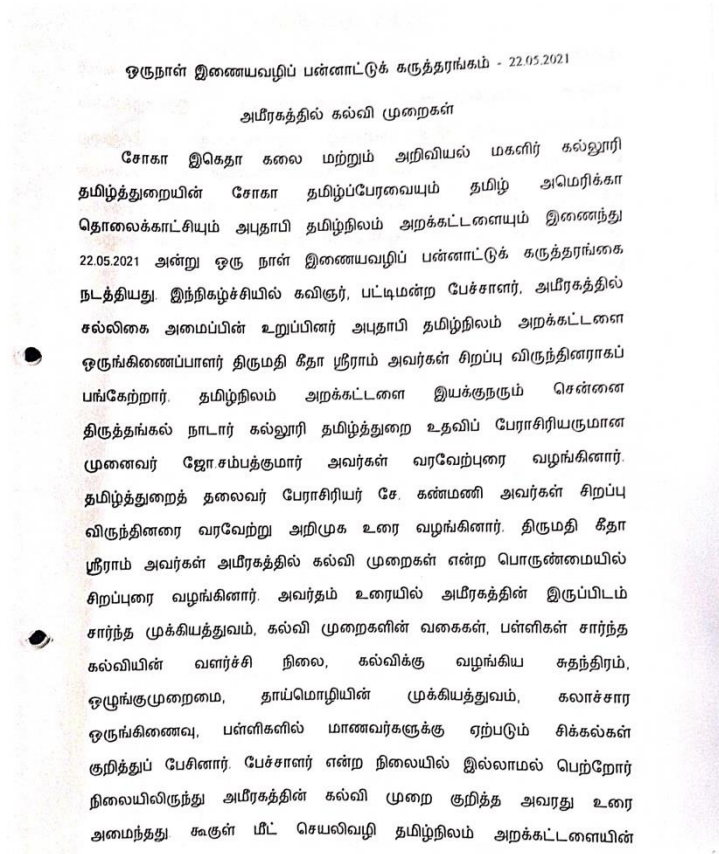 ஒருநாள் இணையவழிப் பன்னாட்டுக் கருத்தரங்கம் - 22.05.2021
அமீரகத்தில் கல்வி முறைகள்
சோகா இகெதா கலை மற்றும் அறிவியல் மகளிர் கல்லூரி
தமிழ்த்துறையின் சோகா தமிழ்ப்பேரவையும் தமிழ் அமெரிக்கா
தொலைக்காட்சியும் அபுதாபி தமிழ்நிலம் அறக்கட்டளையும் இணைந்து
22.05.2021 அன்று ஒரு நாள் இணையவழிப் பன்னாட்டுக் கருத்தரங்கை
நடத்தியது. இந்நிகழ்ச்சியில் கவிஞர், பட்டிமன்ற பேச்சாளர், அமீரகத்தில்
சல்லிகை அமைப்பின் உறுப்பினர் அபுதாபி தமிழ்நிலம் அறக்கட்டளை
ஒருங்கிணைப்பாளர் திருமதி கீதா ஸ்ரீராம் அவர்கள் சிறப்பு விருந்தினராகப்
பங்கேற்றார். தமிழ்நிலம் அறக்கட்டளை இயக்குநரும் சென்னை
திருத்தங்கல் நாடார் கல்லூரி தமிழ்த்துறை உதவிப் பேராசிரியருமான
முனைவர் ஜோ.சம்பத்குமார் அவர்கள் வரவேற்புரை வழங்கினார்.
தமிழ்த்துறைத் தலைவர் பேராசிரியர் சே. கண்மணி அவர்கள் சிறப்பு
விருந்தினரை வரவேற்று அறிமுக உரை வழங்கினார். திருமதி கீதா
ஸ்ரீராம் அவர்கள் அமீரகத்தில் கல்வி முறைகள் என்ற பொருண்மையில்
சிறப்புரை வழங்கினார். அவர்தம் உரையில் அமீரகத்தின் இருப்பிடம்
சார்ந்த முக்கியத்துவம், கல்வி முறைகளின் வகைகள், பள்ளிகள் சார்ந்த
கல்வியின் வளர்ச்சி நிலை, கல்விக்கு வழங்கிய சுதந்திரம்,
ஒழுங்குமுறைமை, தாய்மொழியின் முக்கியத்துவம், கலாச்சார
ஒருங்கிணைவு, பள்ளிகளில் மாணவர்களுக்கு ஏற்படும் சிக்கல்கள்
குறித்துப் பேசினார். பேச்சாளர் என்ற நிலையில் இல்லாமல் பெற்றோர்
நிலையிலிருந்து அமீரகத்தின் கல்வி முறை குறித்த அவரது உரை
அமைந்தது. கூகுள் மீட் செயலிவழி தமிழ்நிலம் அறக்கட்டளையின்